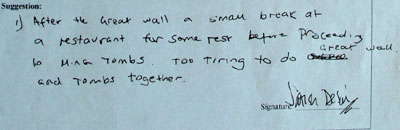 Suggestion:
1) After the Great wall a small break at
a restaurant for some rest before Proceeding
to Ming Tombs. Too Tiring to do Great wall
and Tombs together.
Signature: